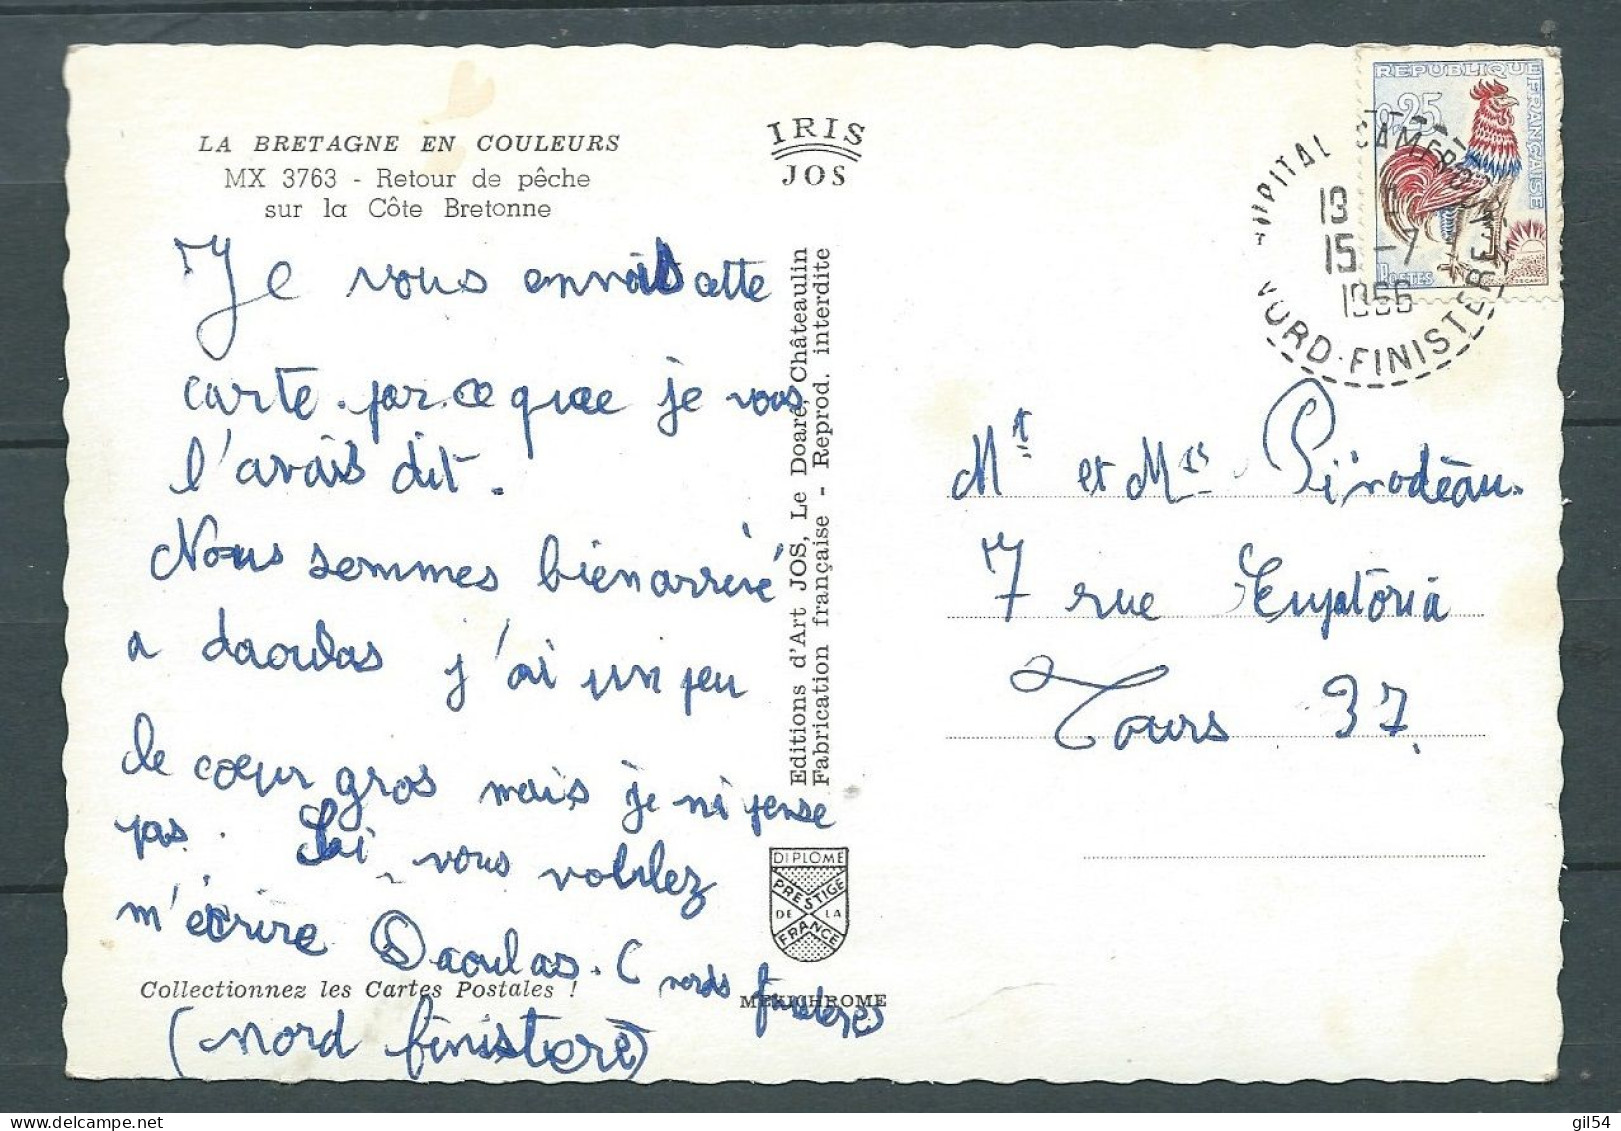 LA BRETAGNE EN COULEURS
MX 3763 - Retour de pêche
sur la Côte Bretonne
Je vous envois cette
carte. par.ce que je vous
l'avais dit.
Nous sommes bien arrivé
a daoulas j'ai un peu
le cœur gros mais je ni pense
pas. Soi vous voulez
m'écrire Daoulas. ( nords
(nord finistere)
Collectionnez les Cartes Postales !
IRIS
JOS
Editions d'Art JOS, Le Doaré, Châteaulin
Fabrication française - Reprod. interdite
DIPLOME
PRESTIGE
DE LA
FRANCE
MEXICHROME
REPUBLIQUE FRANÇAISE
0,25
POSTES
HOPITAL CAMFROUT
15 -7
1966
NORD-FINISTERE
Mr et Mes Pinodeau.
7 rue Eupatoria
Tours 37.
gil54